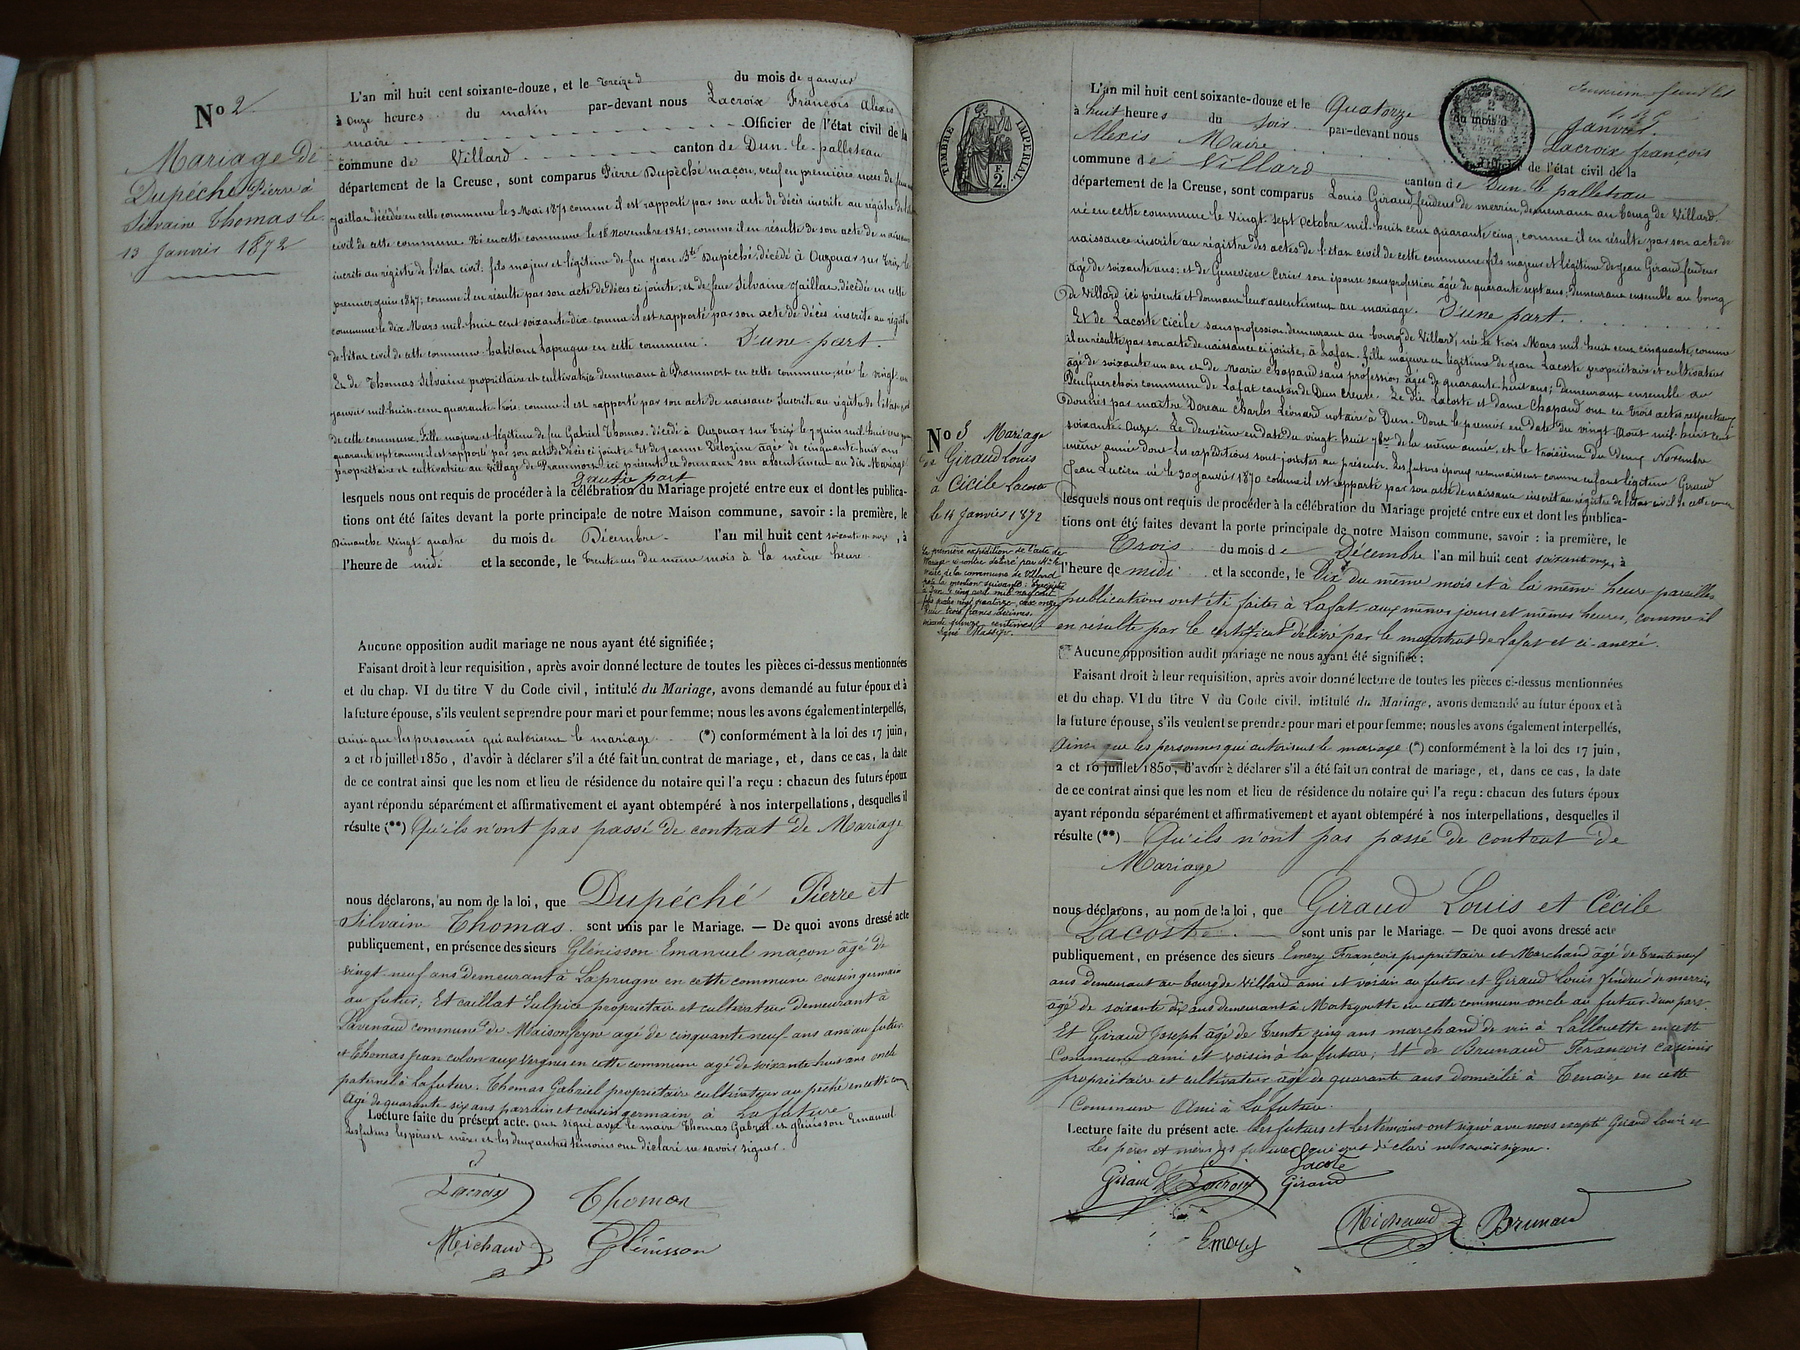 No 2
Mariage de
Dupéché Pierre à
Silvaine Thomas le
13 Janvier 1872
L'an mil huit cent soixante-douze, et le treize du mois de janvier
à onze heures du matin par-devant nous Lacroix François Alexis
maire Officier de l'état civil de la
commune de Villard canton de Dun-le-palleteau
département de la Creuse, sont comparus Pierre Dupéché maçon, veuf en premières noces de
Jaillac décédée en cette commune le 3 Mai 1871 comme il est rapporté par son acte de décès inscrite au régistre de l'état
civil de cette commune. Né en cette commune le 18 Novembre 1841; comme il en résulte de son acte de naissance
inscrite au régistre de l'état civil; fils majeur et légitime de feu Jean Bte Dupéché, décédé à Ouzouer sur Trézé le
premier juin 1847; comme il en résulte par son acte de décès ci jointe; et de feue Silvaine Jaillac, décédée en cette
commune le dix Mars mil-huit cent soixante-dix comme il est rapporté par son acte de décès inscrite au régistre
de l'état civil de cette commune habitant Laprugne en cette commune. D'une part.
Et de Thomas Silvaine propriétaire et cultivatrice demeurant à Prammort en cette commune; née le vingt
janvier mil-huit-cent quarante-trois; comme il est rapporté par son acte de naissance Inscrite au régistre de l'état civil
de cette commune. Fille majeure et légitime de feu Gabriel Thomas, décédé à Ouzouer sur Trézé le 7 juin mil huit cent
quarante sept comme il est rapporté par son acte de décès ci jointe. Et de Jeanne Velozine âgée de cinquante-huit ans
propriétaire et cultivatrice au village de Prammort ici présente et donnant son assentiment au dit Mariage
D'autre part
lesquels nous ont requis de procéder à la célébration du Mariage projeté entre eux et dont les publica-
tions ont été faites devant la porte principale de notre Maison commune, savoir : la première, le
Dimanche vingt quatre du mois de Décembre l'an mil huit cent soixante-onze, à
l'heure de midi et la seconde, le trente-un du même mois à la même heure
Aucune opposition audit mariage ne nous ayant été signifiée;
Faisant droit à leur requisition, après avoir donné lecture de toutes les pièces ci-dessus mentionnées
et du chap. VI du titre V du Code civil, intitulé du Mariage, avons demandé au futur époux et à
la future épouse, s'ils veulent se prendre pour mari et pour femme; nous les avons également interpellés,
ainsi que les personnes qui autorisent le mariage (*) conformément à la loi des 17 juin,
2 et 10 juillet 1850, d'avoir à déclarer s'il a été fait un contrat de mariage, et, dans ce cas, la date
de ce contrat ainsi que les nom et lieu de résidence du notaire qui l'a reçu : chacun des futurs époux
ayant répondu séparément et affirmativement et ayant obtempéré à nos interpellations, desquelles il
résulte (**) Qu'ils n'ont pas passé de contrat de Mariage
nous déclarons, au nom de la loi, que Dupéché Pierre et
Silvain Thomas sont unis par le Mariage. — De quoi avons dressé acte
publiquement, en présence des sieurs Glénisson Emanuel maçon âgé de
vingt-neuf ans Demeurant à Laprugne en cette commune cousin germain
au futur; Et Caillat Sulpice propriétaire et cultivateur Demeurant à
commune de Maisonfeyne agé de cinquante neuf ans ami au futur
et Thomas Jean colon aux Vergnes en cette commune agé de soixante huit ans oncle
paternel à la future; Thomas Gabriel propriétaire cultivateur au peché en cette com
Agé de quarante-six ans parrain et cousin germain à La future
Lecture faite du présent acte. ont signé avec le maire Thomas Gabriel et glénisson Emanuel
Les futurs les pères et mères et les deux autres témoins ont déclaré ne savoir signer.
Lacroix Thomas
Michaud Glénisson
TIMBRE IMPÉRIAL
F. 2.
L'an mil huit cent soixante-douze et le Quatorze du mois d Janvier
à huit heures du Soir par-devant nous Lacroix françois
Alexis Maire de l'état civil de la
commune de Villard canton de Dun le palleteau
département de la Creuse, sont comparus Louis Giraud fendeur de merrin, demeurant au bourg de Villard.
né en cette commune le vingt sept Octobre mil-huit cent quarante cinq, comme il en résulte par son acte de
naissance inscrite au régistre des actes de l'état civil de cette commune fils majeur et légitime de Jean Giraud fendeur
âgé de soixante ans; et de Genevieve Cerie son épouse sans profession âgée de quarante sept ans; demeurant ensemble au bourg
de Villard ici présents et donnant leur assentiment au mariage. D'une part.
Et de Lacoste Cicile sans profession demeurant au bourg de Villard, née le trois Mars mil huit cent cinquante, comme
il en résulte par son acte de naissance ci jointe, à Lafat. fille majeure et légitime de Jean Lacoste propriétaire et cultivateur
âgé de soixante un an et de Marie Chapard sans profession âgée de quarante-huit ans; Demeurant ensemble au
commune de Lafat canton de Dun Creuse. Le dit Lacoste et dame Chapard ont en trois actes respectueux
donnés par maître Doreau Charles Léonard notaire à Dun. Dont le premier en date du vingt Aout mil-huit cent
soixante-Onze. Le deuxième en date du vingt huit 7bre de la même année, et le troisième du Deux Novembre
même année dont les expéditions sont jointes au présent. Les futurs époux reconnaissent comme enfant légitime Giraud
Jean Lucien né le 30 janvier 1870 comme il est rapporté par son acte de naissance inscrit au régistre de l'état civil de cette commune
lesquels nous ont requis de procéder à la célébration du Mariage projeté entre eux et dont les publica-
tions ont été faites devant la porte principale de notre Maison commune, savoir : la première, le
Trois du mois de Décembre l'an mil huit cent soixante onze, à
l'heure de midi et la seconde, le Dix du même mois et à la même heure pareilles
publications ont été faites à Lafat aux mêmes jours et mêmes heures, comme il
en résulte par le certificat délivré par le magistrat de Lafat et ci-anexé.
No 3 Mariage
de Giraud Louis
à Cicile Lacoste
le 14 Janvier 1872
La première expédition de l'acte de
Mariage ci-contre délivré par Mr le
Maire de la commune de Villard
porte la mention suivante : Enregistré
à Dun le cinq avril mil neuf cent
Reçu trois francs décimes
soixante quinze centimes
Signé Massip.
Aucune opposition audit mariage ne nous ayant été signifiée;
Faisant droit à leur requisition, après avoir donné lecture de toutes les pièces ci-dessus mentionnées
et du chap. VI du titre V du Code civil, intitulé du Mariage, avons demandé au futur époux et à
la future épouse, s'ils veulent se prendre pour mari et pour femme; nous les avons également interpellés,
Ainsi que les personnes qui autorisent le mariage (*) conformément à la loi des 17 juin,
2 et 10 juillet 1850, d'avoir à déclarer s'il a été fait un contrat de mariage, et, dans ce cas, la date
de ce contrat ainsi que les nom et lieu de résidence du notaire qui l'a reçu : chacun des futurs époux
ayant répondu séparément et affirmativement et ayant obtempéré à nos interpellations, desquelles il
résulte (**) Qu'ils n'ont pas passé de contrat de
Mariage
nous déclarons, au nom de la loi, que Giraud Louis et Cécile
Lacoste sont unis par le Mariage. — De quoi avons dressé acte
publiquement, en présence des sieurs Emery François propriétaire et Marchand âgé de trente neuf
ans demeurant au bourg de Villard ami et voisin au futur et Giraud Louis fendeur de merrin
âgé de soixante dix ans demeurant à Matrgoutte en cette commune oncle au futur d'une part
Et Giraud Joseph âgé de Trente cinq ans marchand de vin à Lallouette en cette
Commune ami et voisin à la future; Et de Brunaud Ferançois casimir
propriétaire et cultivateur âgé de quarante ans domicilié à Tenaize en cette
Commune Ami à La future.
Lecture faite du présent acte. Les futurs et les témoins ont signé avec nous excepté Giraud Louis et
Les pères et mères des futures qui ont déclaré ne savoir signer.
Lacoste
Giraud Lacroix Giraud
Emery Michaud Brunaud